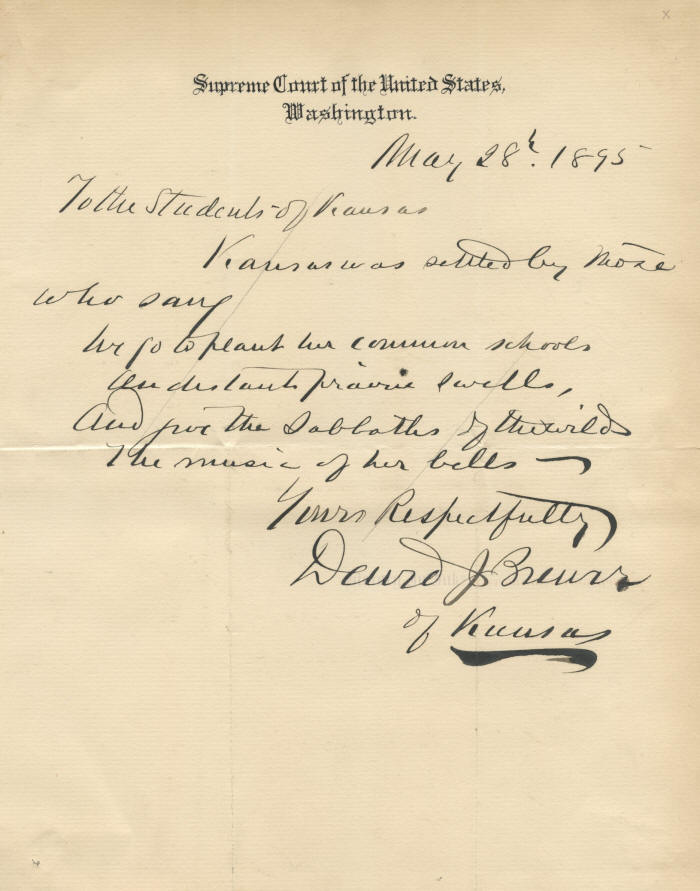 Supreme Court of the United States,
Washington.
May 28th. 1895
To the Students of Kansas
Kansas was settled by those
who sang
We go to plant her common schools
On distant prairie swells,
And give the Sabbaths of the wilds
The music of her bells —
Yours Respectfully
David J Brewer
of Kansas